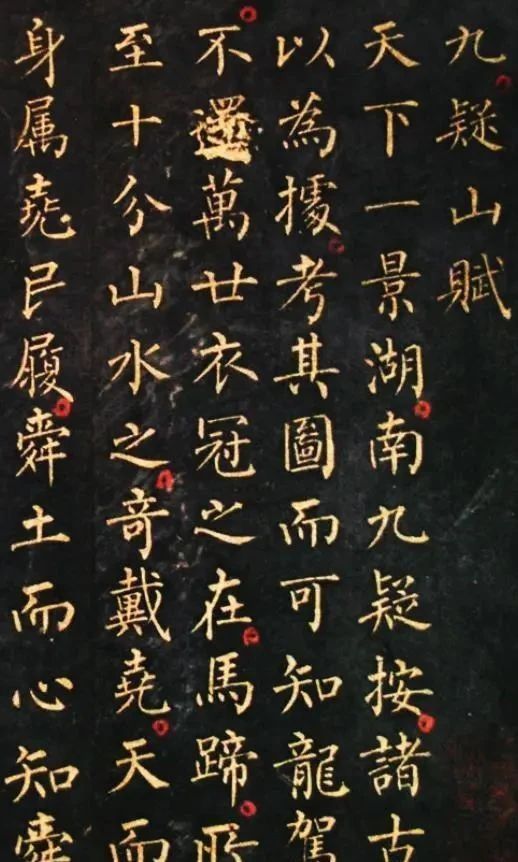 九疑山賦
天下一景湖南九疑按諸古
以為據考其圖而可知龍駕
不還萬廿衣冠之在馬蹄所
至十分山水之奇戴堯天而
身属堯民履舜土而心知舜